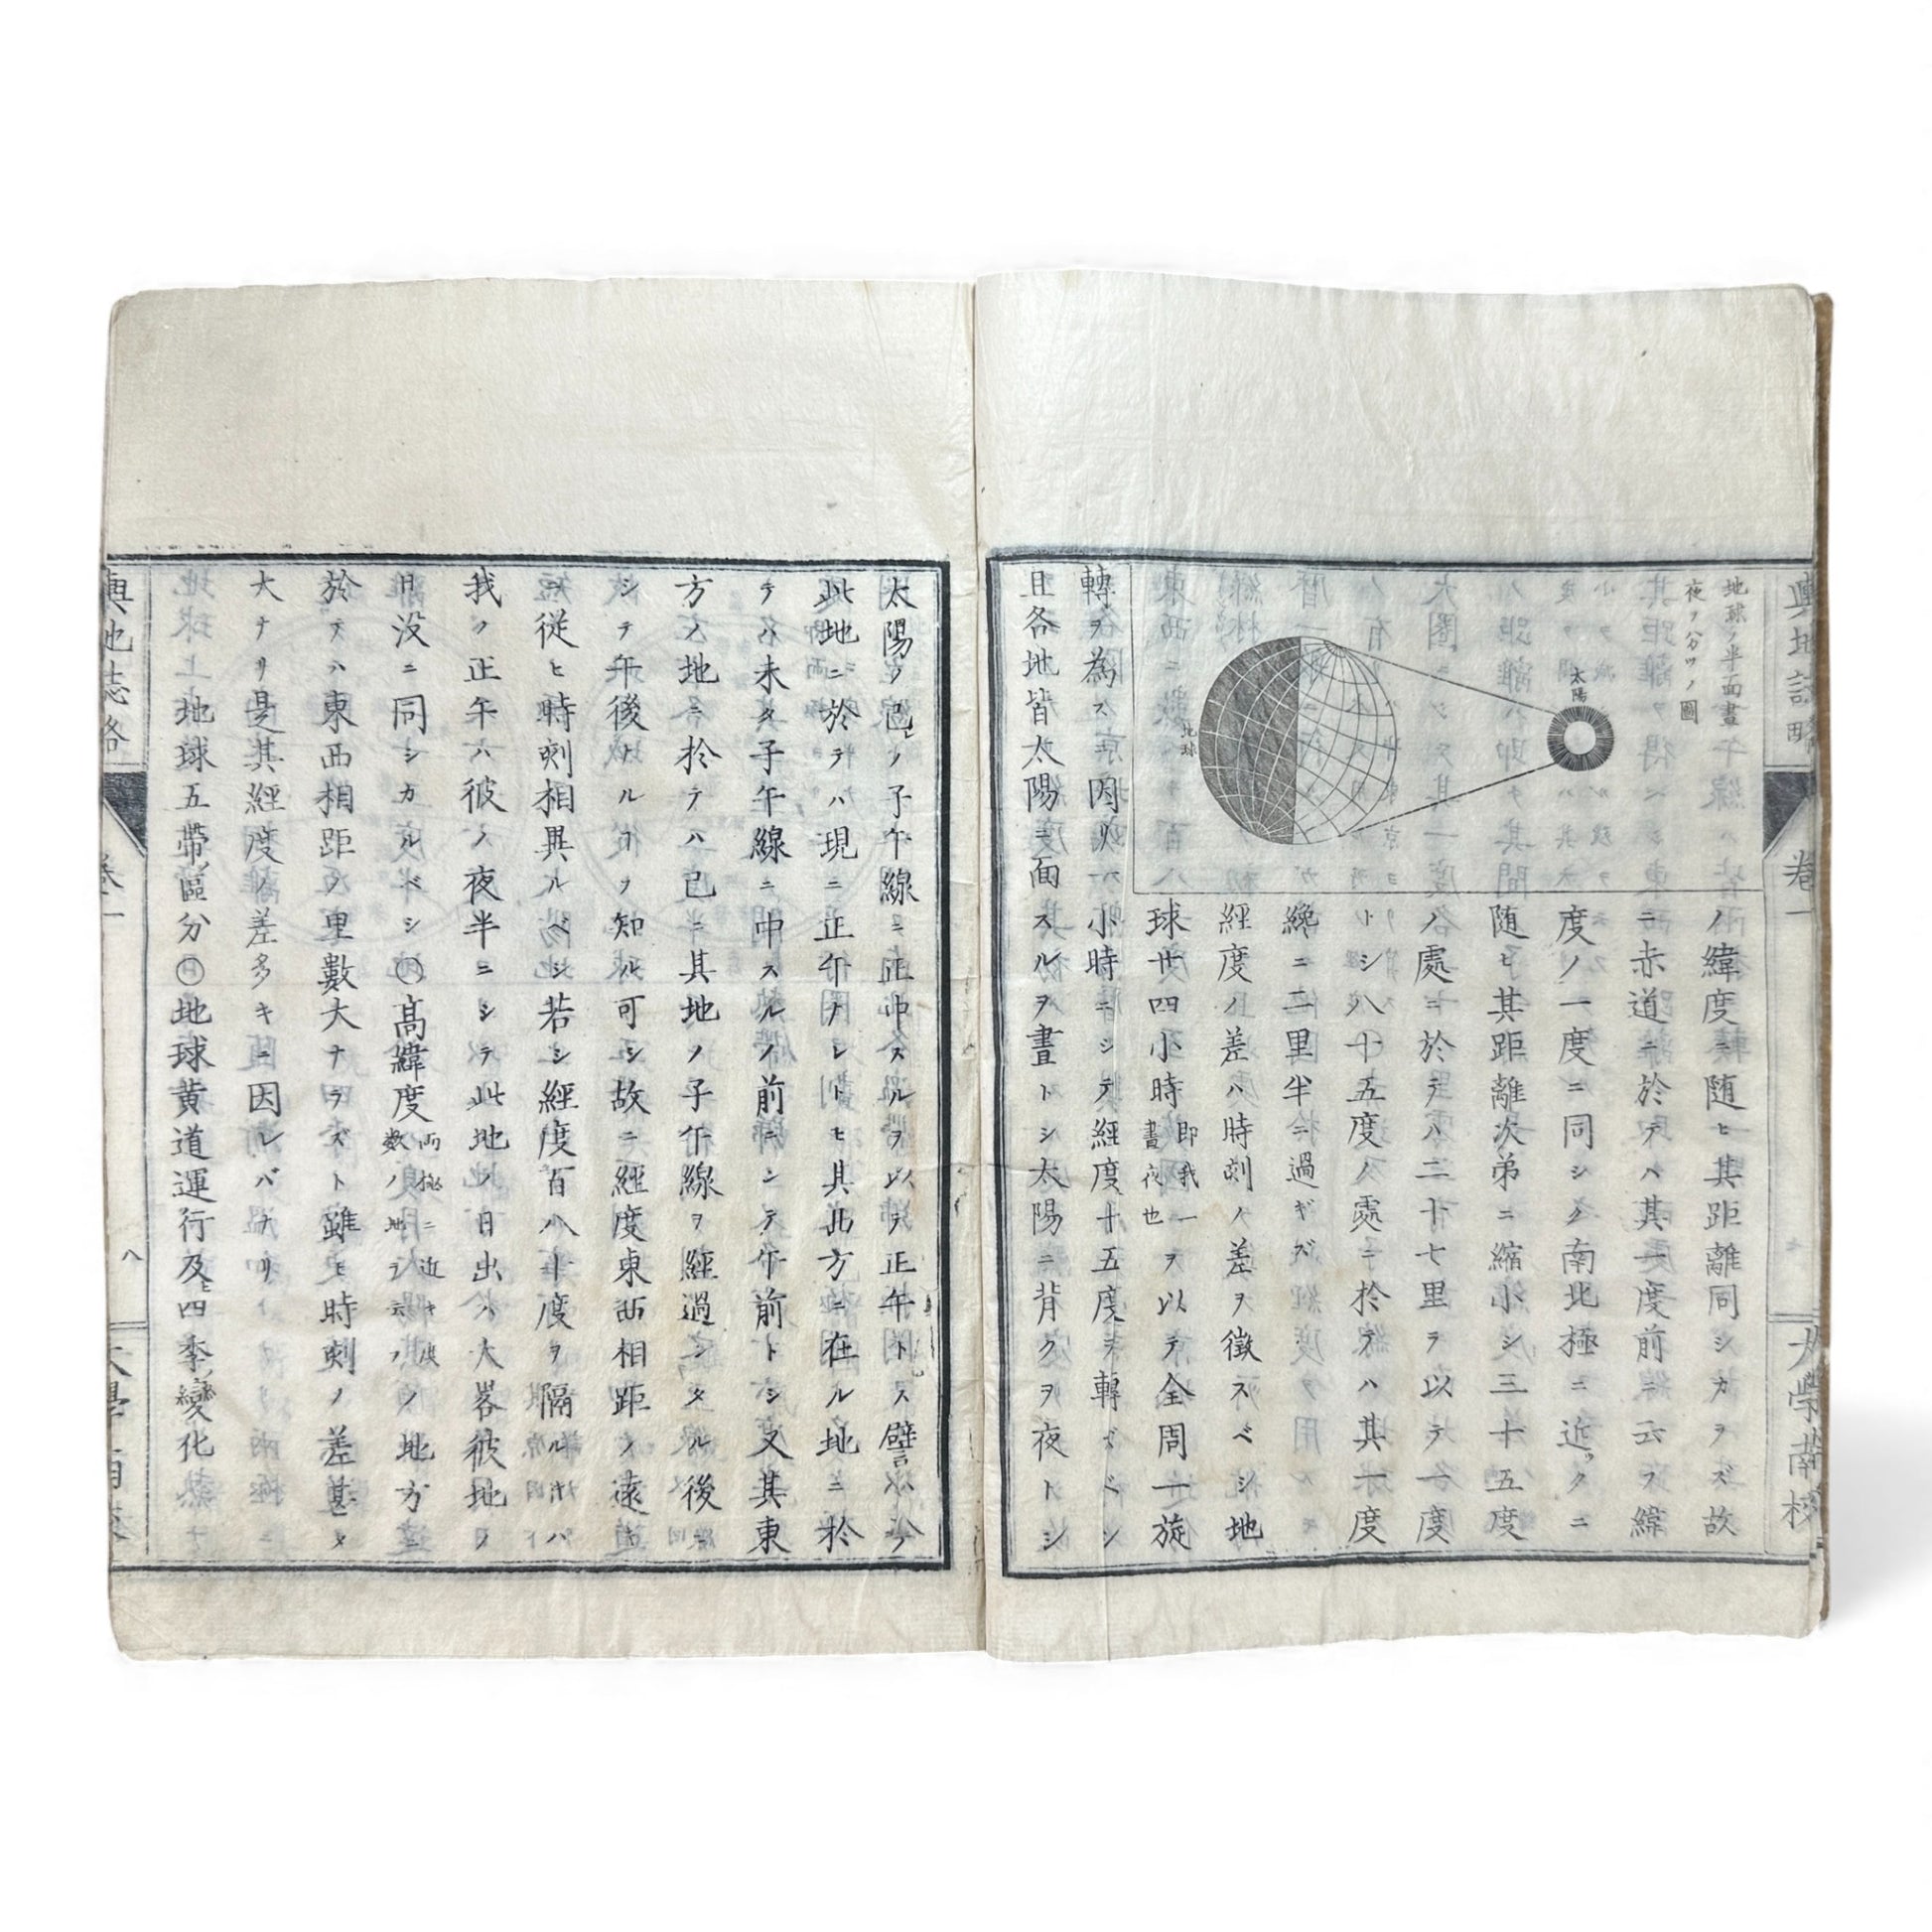 輿地誌略
卷一
大學南校
地球ノ半面晝
夜ヲ分ツノ圖
太陽
地球
ノ緯度ニ随ヒ其距離同シカラズ故
ニ赤道ニ於テハ其一度前ニ云フ緯
度ノ一度ニ同シキノ南北極ニ近ックニ
随ヒ其距離次第ニ縮小シ三十五度
ノ處ニ於テハ二十七里ヲ以テ一度
トシ八十五度ノ處ニ於テハ其一度
纔ニ二里半ニ過ギズ
經度ノ差ハ時刻ノ差ヲ徴スベシ地
球廿四小時即我一晝夜也ヲ以テ全周一旋
轉ヲ為ス因リ一小時ニシテ經度十五度ヲ轉ズベシ
且各地皆太陽ニ面スルヲ晝トシ太陽ニ背クヲ夜トシ
太陽ノ己レノ子午線ニ正中スルヲ以テ正午トス譬ヘハ今
此地ニ於テハ現ニ正午ナレトヒ其西方ニ在ル地ニ於
テハ未タ子午線ニ中スルノ前ニシテ午前トシ又其東
方ノ地ニ於テハ已ニ其地ノ子午線ヲ經過シタル後ニ
シテ午後トルコヲ知ル可シ故ニ經度東西相距ノ遠近
ニ從ヒ時刻相異ルベシ若シ經度百八十度ヲ隔ルキハ
我ノ正午ハ彼ノ夜半ニシテ此地ノ日出ハ大畧彼地ノ
日没ニ同シカルベシ〇高緯度両極ニ近キ度数ノ地ヲ云フノ地方ニ
於テハ東西相距ノ里數大ナラズト雖ヒ時刻ノ差甚タ
大ナリ是其經度ノ差多キニ因レバナリ
地球五帶區分〇地球黄道運行及ヒ四季變化
輿地誌略
卷一
八
大學南校